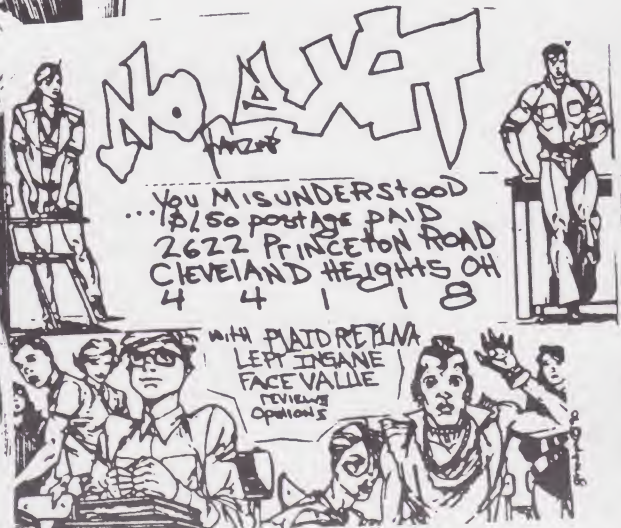 No Exit
FANZINE
...You MISUNDERStOOD
$1.50 postage PAID
2622 PRINCETON ROAD
CLEVELAND HEIGHTS OH
4 4 1 1 8
with PLAID RETINA
LEFT INSANE
FACE VALUE
reviews
Opinions